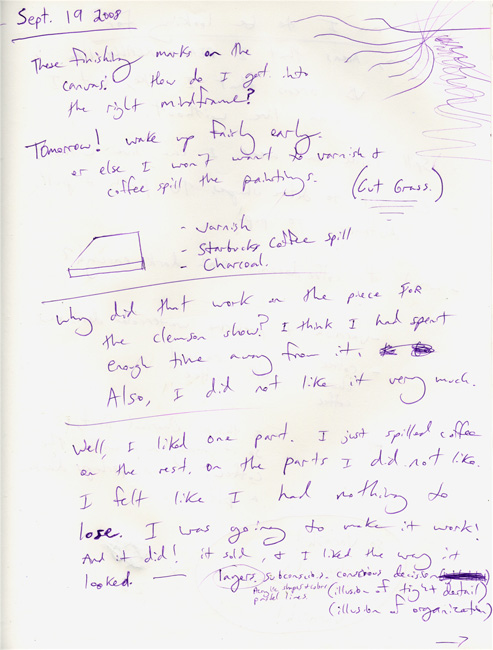 Sept. 19 2008
These finishing marks on the
canvas! How do I get into
the right mindframe?
Tomorrow! wake up fairly early.
or else I won't want to varnish &
coffee spill the paintings.
(Cut Grass.)
- varnish
- Starbucks coffee spill
- Charcoal.
Why did that work on the piece FOR
the clemson show? I think I had spent
enough time away from it.
Also, I did not like it very much.
Well, I liked one part. I just spilled coffee
on the rest, on the parts I did not like.
I felt like I had nothing to
lose. I was going to make it work!
And it did! it sold, & I liked the way it
looked. — layers, subconscious. conscious decisson
Acrylic shapes + colors
parallel lines.
(illusion of tight detail)
(illusion of organization)